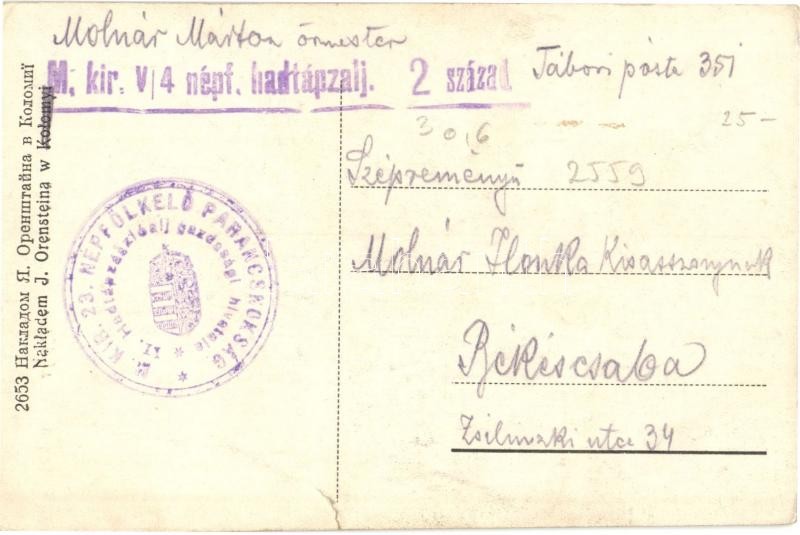 Molnár Márton őrmester
M. kir. V/4 népf. hadtápzalj. 2 század
Tábori pósta 351
30,6
25-
Szépreményű 2559
Molnár Ilonka Kisasszonynak
Békéscsaba
Zsilinszki utca 34
M. KIR. 23. NÉPFÖLKELŐ PARANCSNOKSÁG
gazdasági hivatala
2653 Накладом Я. Оренштайна в Коломиї
Nakładem J. Orensteina w Kołomyi